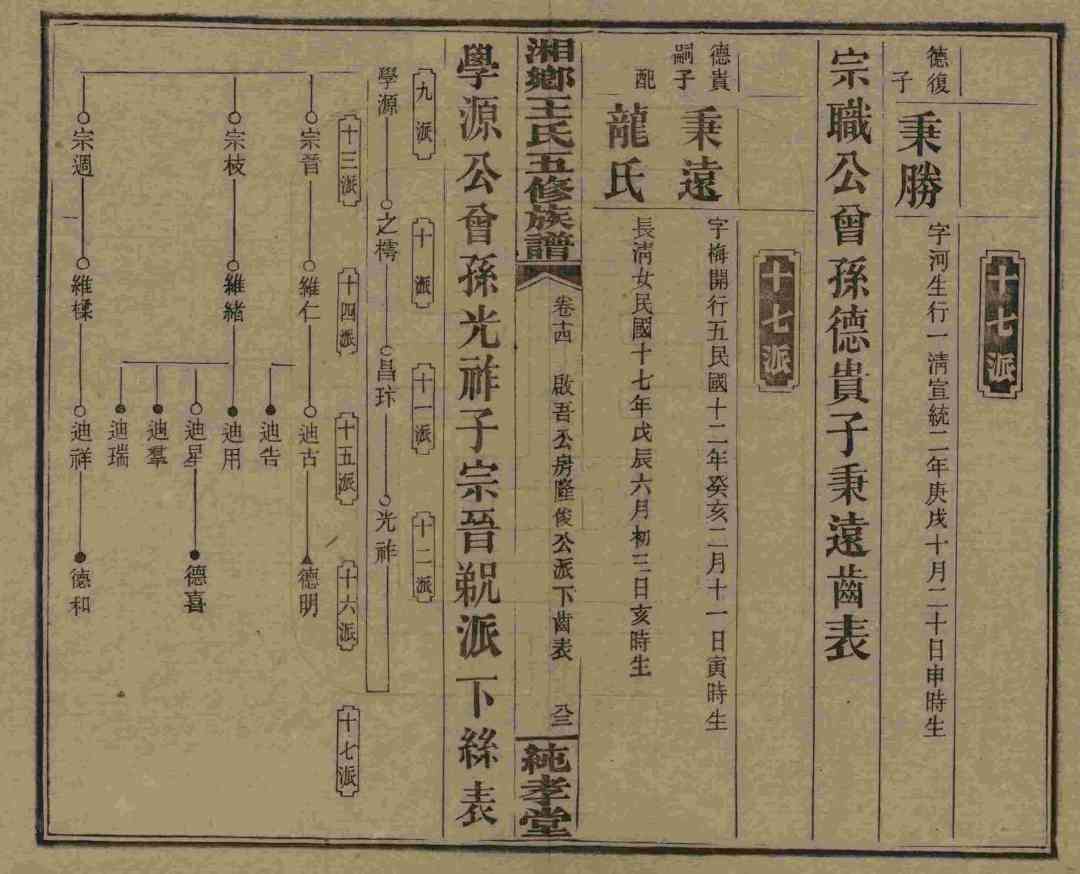 十七派
德復子
秉勝
字河生行一清宣統二年庚戌十月二十日申時生
宗職公曾孫德貴子秉遠齒表
十七派
德貴嗣子
秉遠
字梅開行五民國十二年癸亥二月十一日寅時生
配
龍氏
長清女民國十七年戊辰六月初三日亥時生
湘鄉王氏五修族譜
卷十四
啟吾公房隆俊公派下齒表
八三
純孝堂
學源公曾孫光祚子宗晉祝派下絲表
九派
十派
十一派
十二派
學源
之樗
昌玤
光祚
十三派
十四派
十五派
十六派
十七派
宗晉
維仁
迪古
德明
迪告
宗枝
維緒
迪用
迪星
德喜
迪羣
迪瑞
宗週
維楺
迪祥
德和